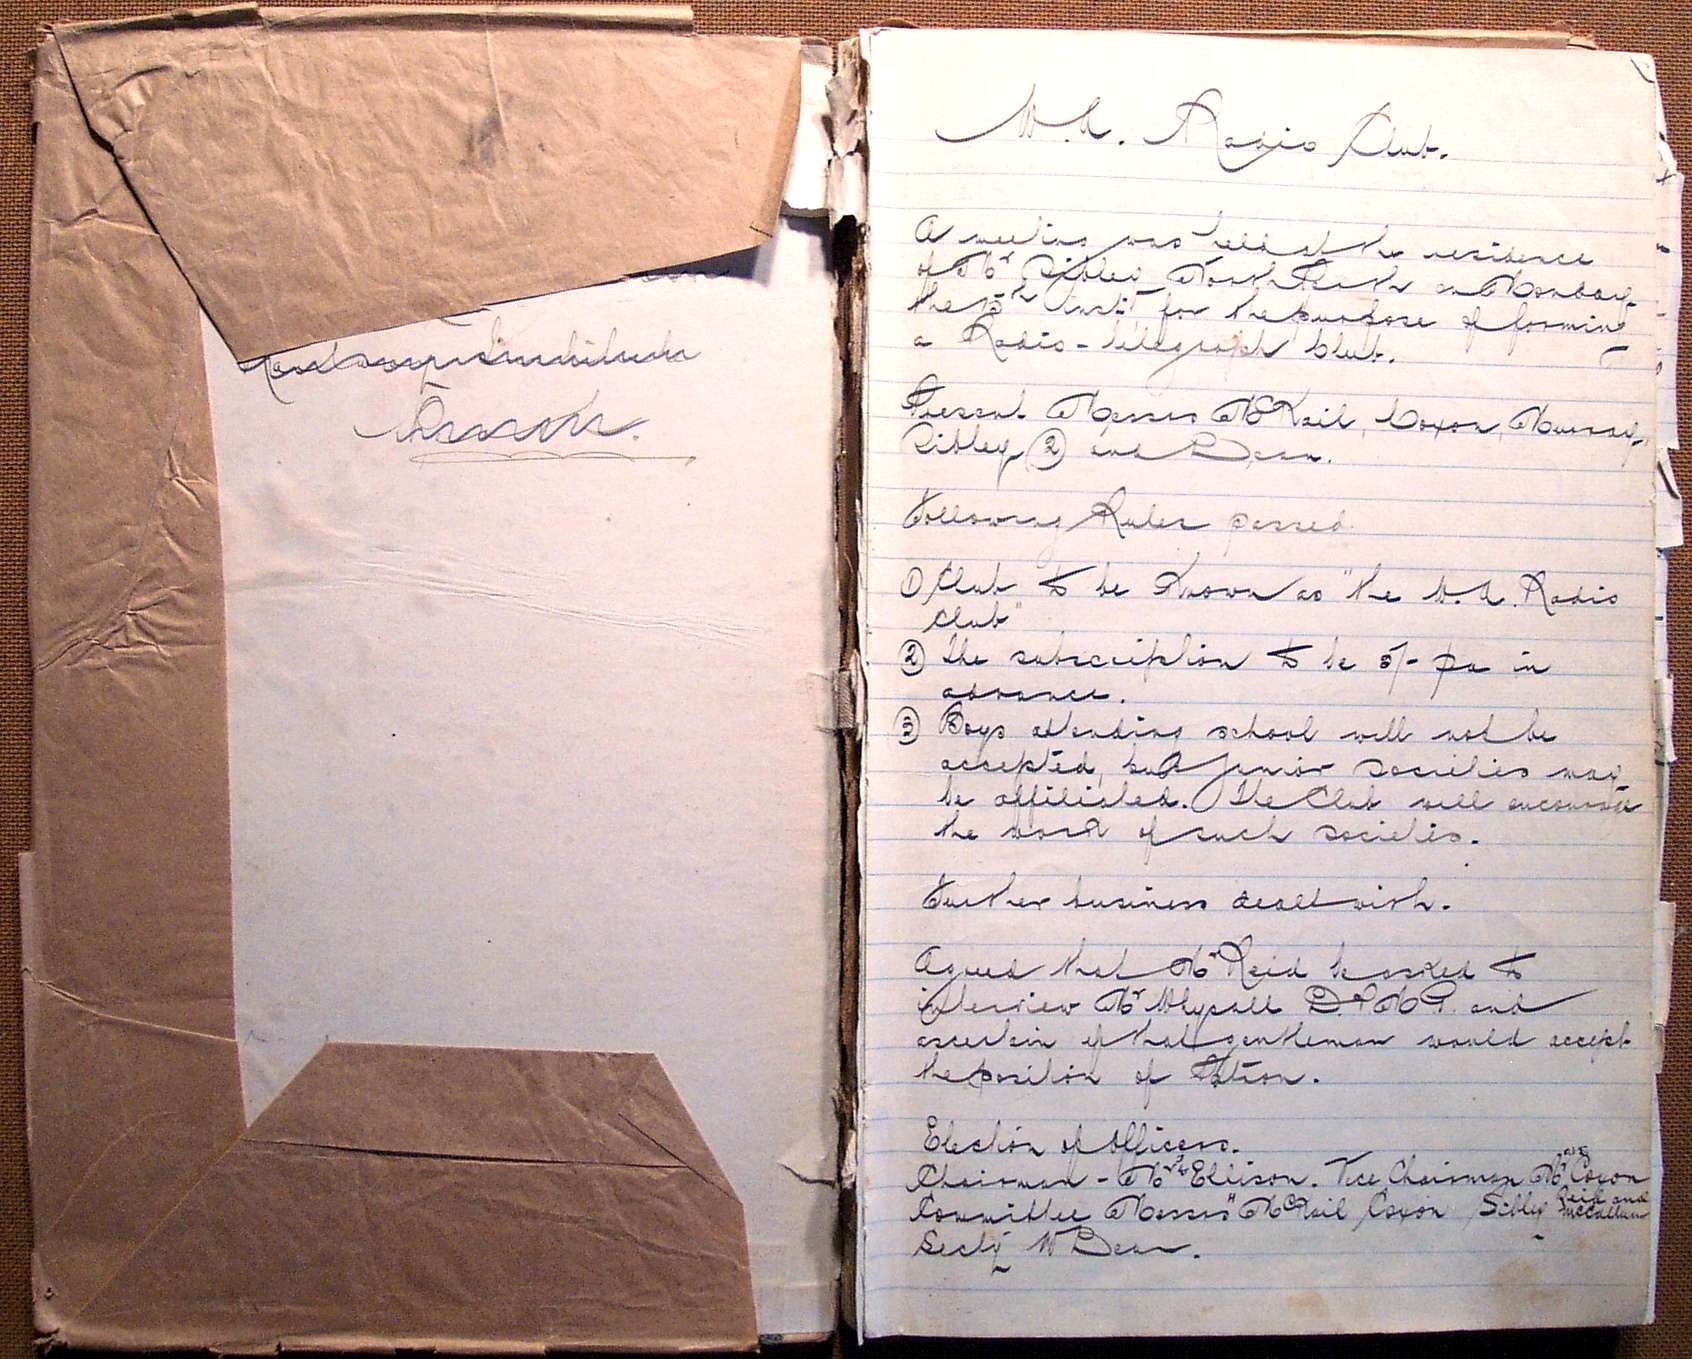 W.A. Radio Club.
A meeting was held at the residence
of Mr Sibley North Perth on Monday
the 5th Inst for the purpose of forming
a Radio-telegraph Club.
Present Messrs McKail, Coxon, Murray,
Sibley (2) and Dean.
Following Rules passed
① Club to be known as "the W.A. Radio
Club"
② The subscription to be 5/- pa in
advance.
③ Boys attending school will not be
accepted, but Junior societies may
be affiliated. The Club will encourage
the work of such societies.
Further business dealt with.
Agreed that Mr Reid be asked to
interview Mr Whysall and
ascertain if that gentleman would accept
the position of Patron.
Election of Officers.
Chairman - Mr Ellison. Vice Chairman Mr Coxon
Committee Messrs McKail Coxon Sibley Reid and McCallum
Secty W Dean.